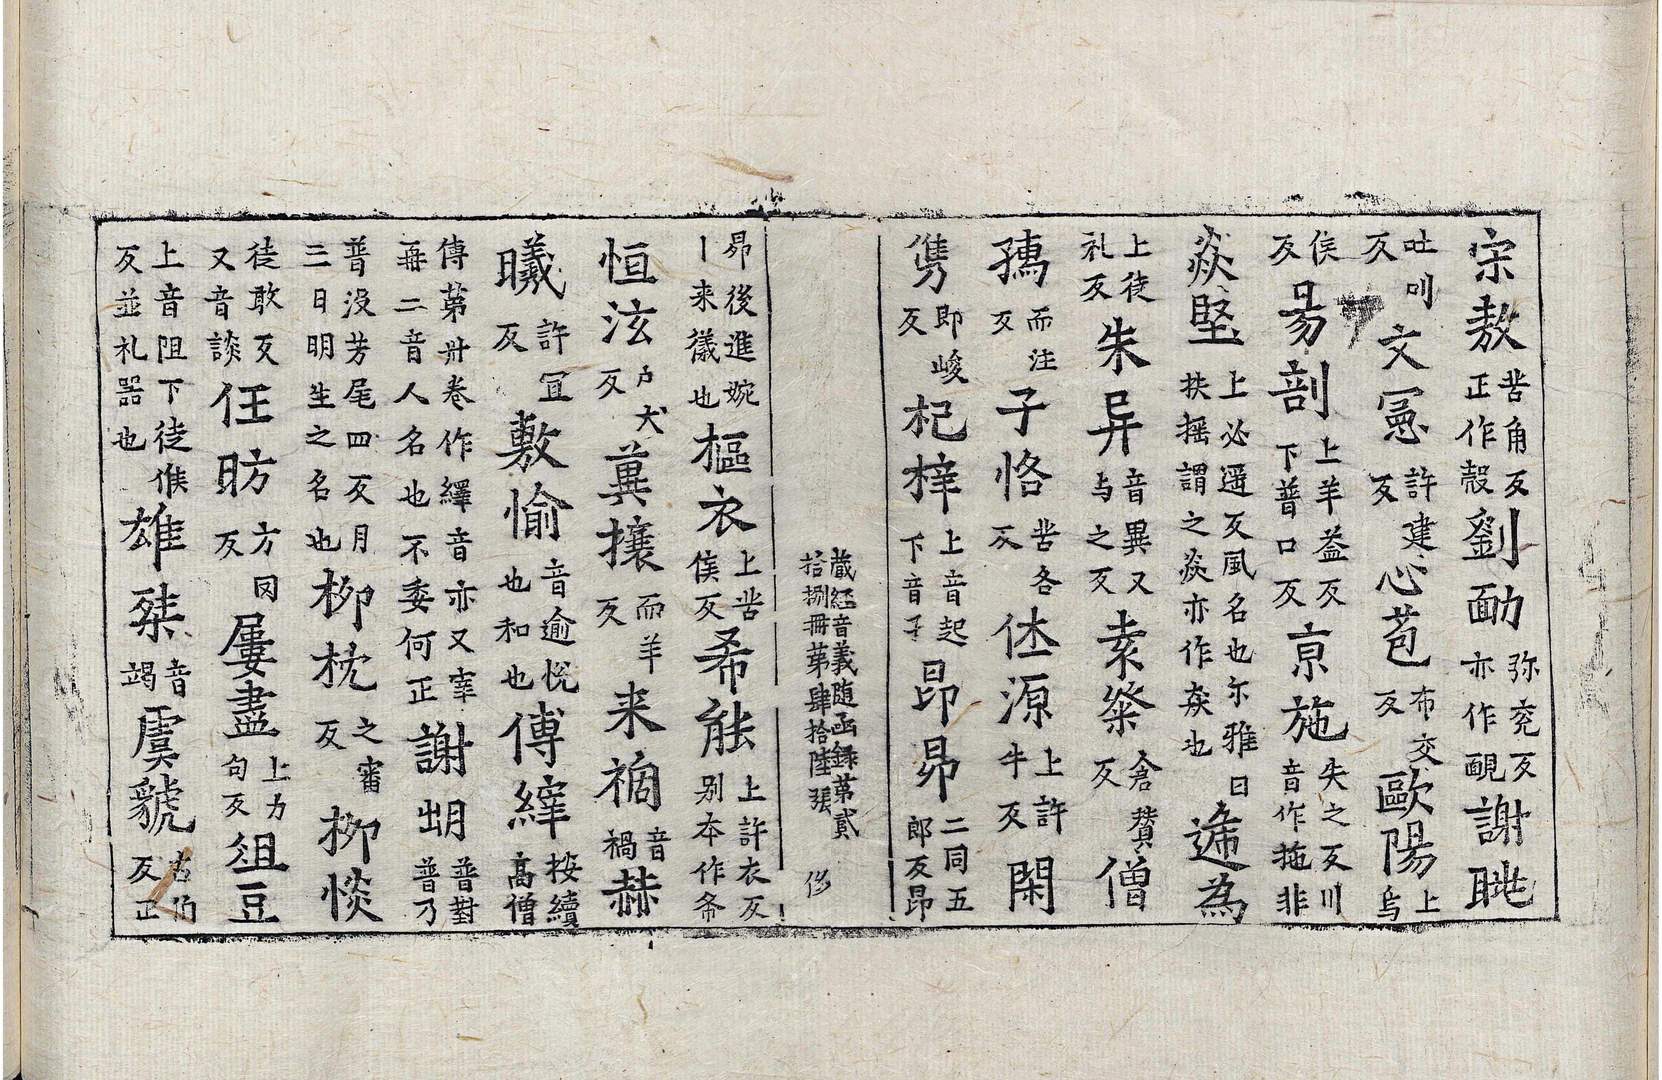 宋敖苦角反正作殼劉勔弥兖反亦作䩄謝眺
吐叫反文冕許建反心苞布交反歐陽上烏
侯反昜剖上羊益反下普口反京施失之反川音作拖非
焱堅上必遥反風名也尓雅曰扶摇謂之焱亦作猋也遞為
上徒礼反朱异音異又与之反素粲倉贊反僧
孺而注反子恪苦各反休源上許牛反閑
儁即峻反杞梓上音起下音子昂昴二同五郎反昂
藏经音義随函録第貳拾捌冊第肆拾陸張 侈
昴後進婉丨来儀也樞衣上苦侯反希能上許衣反别本作𢁫
恒泫戸犬反冀攘而羊反来禍音禍赫
曦許冝反敷愉音逾悅也和也傅縡桉續髙僧
傳苐卅卷作繹音亦又宰再二音人名也不委何正謝朏普對普乃
普没芳尾四反月三日明生之名也柳忱之審反柳惔
徒敢反又音談任昉方罔反屢盡上力句反俎豆
上音阻下徒候反並礼器也雄桀音竭虞虢古伯反正